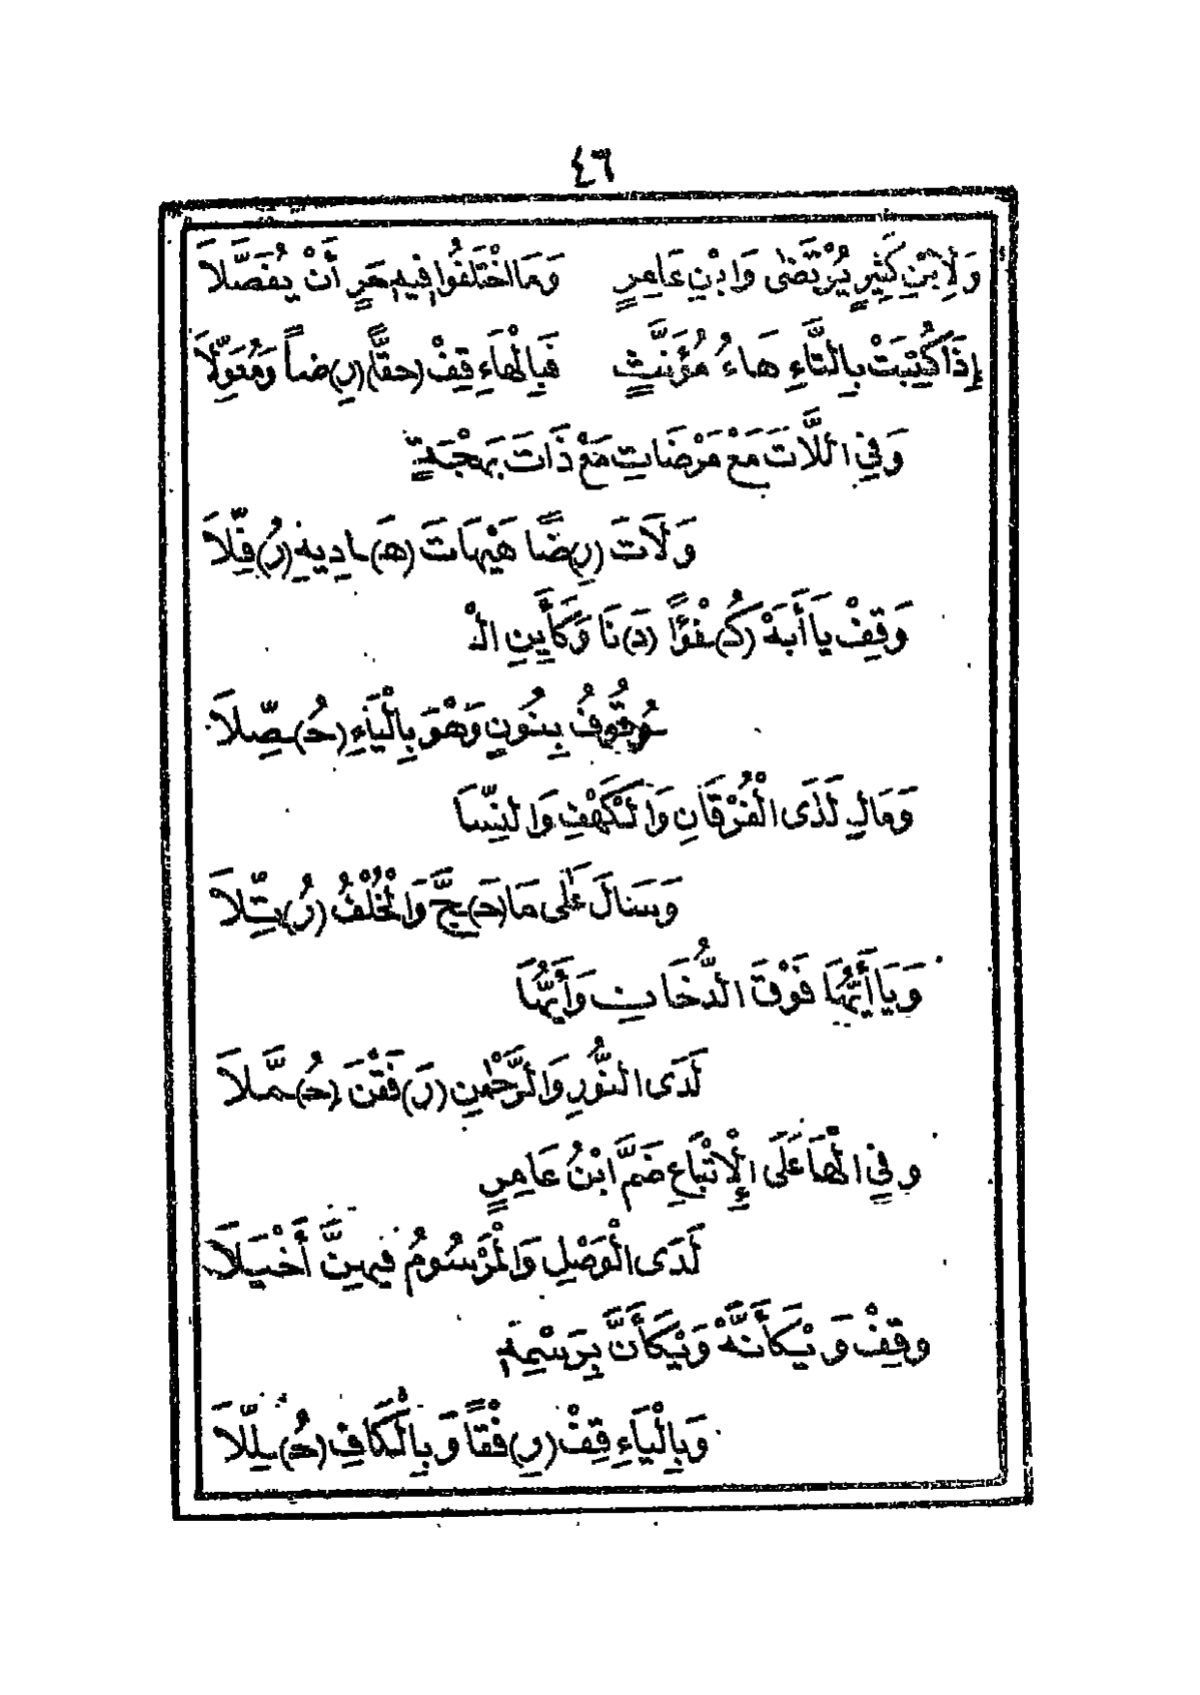 ٤٦
وَلِابْنِ كَثِيرٍ يُرْتَضَى وَابْنِ عَامِرٍ وَمَا اخْتَلَفُوا فِيهِ حَرٍ أَنْ يُفَصَّلَا
إِذَا كُتِبَتْ بِالتَّاءِ هَاءُ مُؤَنَّثٍ فَبِالْهَاءِ قِفْ (حقًّا) (رِ) ضاً وَمُعَوِّلَا
وَفِي اللَّاتَ مَعْ مَرْضَاتِ مَعْ ذَاتَ بَهْجَةٍ
وَلَاتَ (رِ) ضًا هَيْهَاتَ (هَـ) ـادِيهِ (رُ) فِّلَا
وَقِفْ يَا أَبَهْ (كُـ) ـفْؤًا (دَ) نَا وَكَأَيِّنِ الْـ
ـوُقُوفُ بِنُونٍ وَهْوَ بِالْيَاءِ (حُـ) ـصِّلَا
وَمَالِ لَدَى الْفُرْقَانِ وَالْكَهْفِ وَالنِّسَا
وَسَالَ عَلَى مَا (حَـ) ـجَّ وَالْخُلْفُ (رُ) تِّلَا
وَيَا أَيُّهَا فَوْقَ الدُّخَانِ وَأَيُّهَا
لَدَى النُّورِ وَالرَّحْمٰنِ (رَ) فَقْنَ (حُـ) ـمَّلَا
وفِي الْهَا عَلَى الْإِتْبَاعِ ضَمَّ ابْنُ عَامِرٍ
لَدَى الْوَصْلِ وَالْمَرْسُومُ فِيهِنَّ أَخْيَلَا
وقِفْ وَيْكَأَنَّهْ وَيْكَأَنَّ بِرَسْمِهِ
وَبِالْيَاءِ قِفْ (رِ) فْقًا وَبِالْكَافِ (حُـ) ـلِّلَا